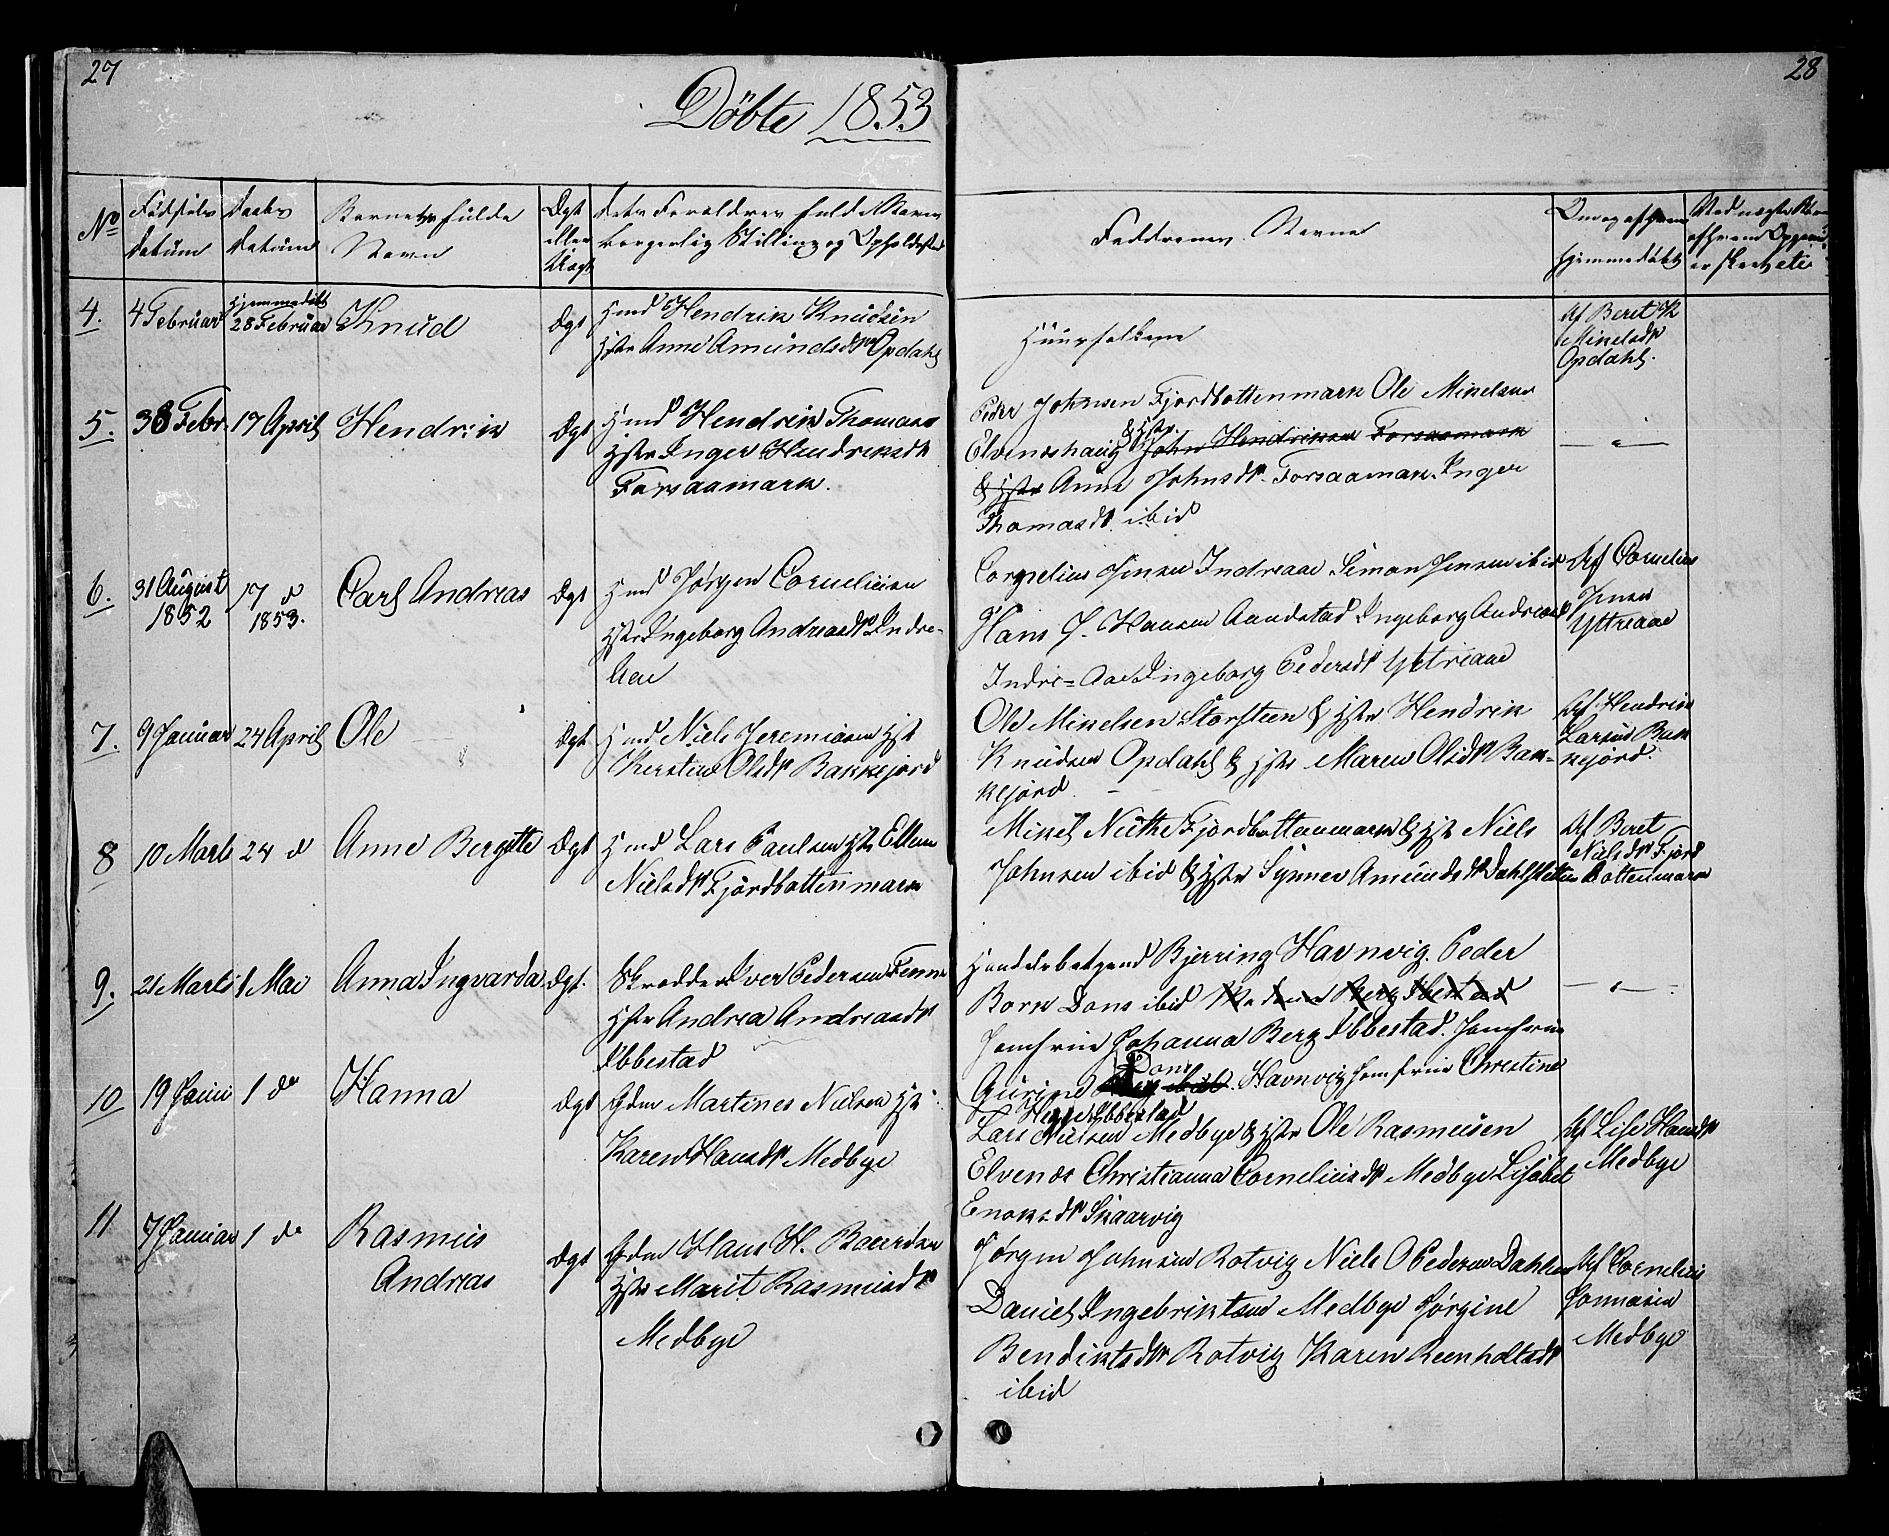 27
28
Döbte 1853
No
Födsels datum
Daabs datum
Barnets fulde Navn
Dgt eller Uægt
dets Foreldres fulde Navn borgerlig Stilling og Opholdssted
Faddrenes Navne
Om og af hvem hjemmedöbt
4.
4 Februar
Hjemmedöbt
28 Februar
Knud
Dgt
Hmd Hendrik Knudsen
Hstr Anne Amundsdtr Opdahl
Huusfolkene
Af Beret K
Mikelsdtr
Opdahl.
5.
38 Febr.
17 April
Hendrik
Dgt
Hmd Hendrik Thomass
Hstr Inger Hendriksdtr
Forsaamark.
Peder Johnsen Fjordbottenmark Ole Mikelsen
Elveneshaug & Hstr. John Hendriksen Forsaamark
& Hstr Anne Johnsdtr. Forsaamark Inger
Thomasdtr. ibid
6.
31 August
1852
17 d
1853.
Carl Andreas
Dgt
Hmd Jörgen Corneliusen
Hstr Ingeborg Andreasdtr Indre-
Aae
Cornelius Jensen Indreaae Simon Jensen ibid
Hans J. Hansen Aandstad Ingeborg Andreasd
Indre=Aae Ingeborg Pedersdtr Ytreaae
Af Cornelius
Jensen
Ytreaae
7.
9 Januar
24 April
Ole
Dgt
Hmd Niels Jeremiasen Hst
Kersten Olsdtr Bakkejord
Ole Mikelsen Storsteen & Hstr Hendrik
Knudsen Opdahl & Hstr Maren Olsdtr Bak-
kejord
Af Hendrik
Larsen Bak
kejord.
8
10 Marts
24 d
Anne Bergitte
Dgt
Hmd Lars Paulsen Hstr Ellen
Nielsdtr Fjordbottenmark
Mikel Neithe Fjordbottenmark & Hst Niels
Johnsen ibid & Hstr Synnev Amundsdtr Dahlsletten
Af Beret
Nielsdtr Fjord
Bottenmark
9.
21 Marts
1 Mai
Anna Ingvarda
Dgt.
Skrædder Iver Pedersen Fenne
Hstr Andrea Andreasdtr
Ibbestad
Handelsbetjent Bjerring Havnvig. Peder
Bork Dons ibid Madam Berg Ibbestad
Jomfrue Johanna Berg Ibbestad. Jomfrue
Gurine Dons Havnvig Jomfrue Christine
Ibbestad
10
19 Januar
1 do
Hanna
Dgt
Gdm Martines Nielsen Hst
Karen Hansdtr Medbye
Lars Nielsen Medbye & Hstr Ole Rasmusen
Elvenes Christianna Corneliusdtr Medbye Lisabet
Enoksdtr Skaarvig
Af Lise Hansdtr
Medbye
11
7 Januar
1 do
Rasmus
Andreas
Dgt
Gdm Hans H. Baardsen
Hstr Marit Rasmusdtr
Medbye
Jörgen Johnsen Rotvig Niels O Pedersen Dahlen
Daniel Ingebriktsen Medbye Jörgine
Bendiktsdtr Rotvig Karen Reenholtsdtr
ibid
Af Cornelius
Jonnasen
Medbye